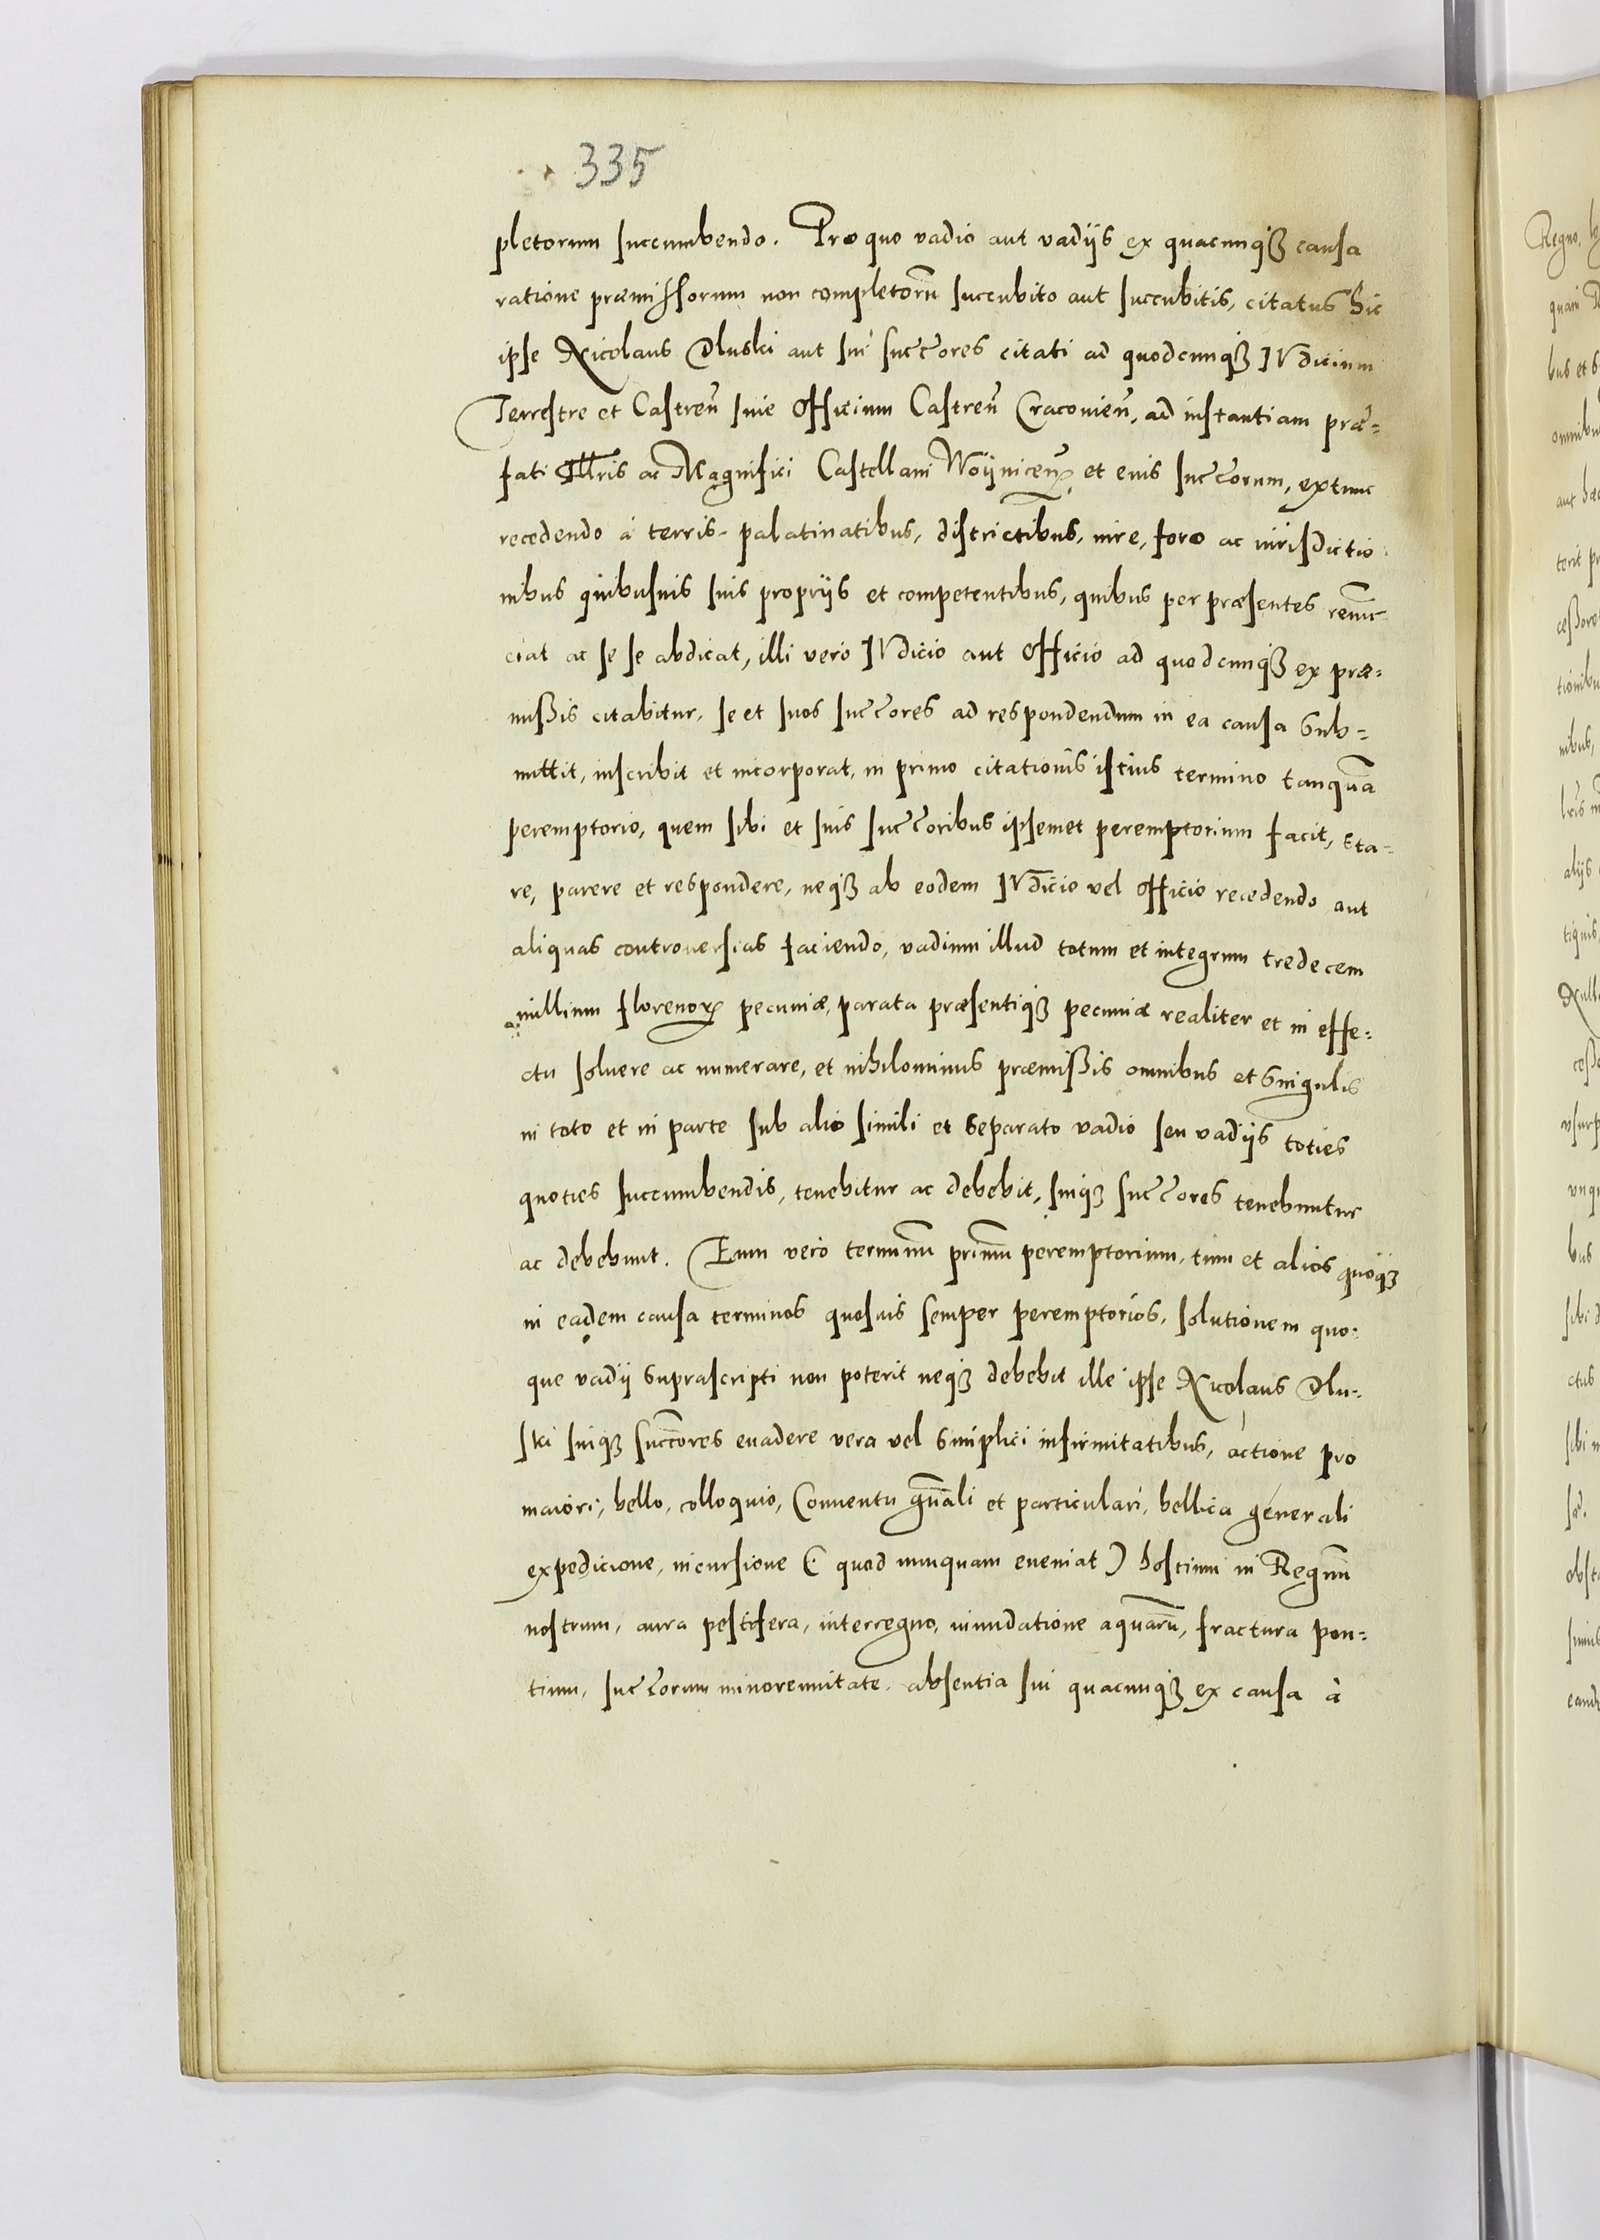 335
pletorum succumbendo. Pro quo vadio aut vadijs ex quacunqꝫ causa
ratione præmissorum non completorū succubito aut succubitis, citatus hic
ipse Nicolaus Dluski aut sui succōres citati ad quodcunqꝫ Iudicium
Terrestre et Castreñ siue Officium Castreñ Cracovieñ, ad instantiam præ=
fati Illris ac Magnifici Castellani Woÿniceñ et eius succōrum, extunc
recedendo à terris, palatinatibus, districtibus, iure, foro ac iurisdictio
nibus quibusuis suis proprijs et competentibus, quibus per præsentes renūc
ciat ac se se abdicat, illi vero Iudicio aut Officio ad quodcunqꝫ ex præ=
mißis citabitur, se et suos succōres ad respondendum in ea causa sub=
mittit, inscribit et incorporat, in primo citationis istius termino tanquā
peremptorio, quem sibi et suis succōribus ipsemet peremptorium facit, sta=
re, parere et respondere, neqꝫ ab eodem Iudicio vel Officio recedendo aut
aliquas controuersias faciendo, vadium illud totum et integrum tredecem
millium florenoꝝ pecuniæ, parata præsentiqꝫ pecunia realiter et in effe=
ctu soluere ac numerare, et nihilominus præmißis omnibus et singulis
in toto et in parte sub alio simili et separato vadio seu vadijs toties
quoties succumbendis, tenebitur ac debebit, suiqꝫ succōres tenebuntur
ac debebunt. Eum vero terminū primū peremptorium, tum et alios quoqꝫ
in eadem causa terminos quosuis semper peremptorios, solutionem quo=
que vadij suprascripti non poterit neqꝫ debebit ille ipse Nicolaus Dlu=
ski suiqꝫ succōres euadere vera vel simplici infirmitatibus, actione pro
maiori, bello, colloquio, Conuentu gn̄ali et particulari, bellica generali
expedicione, incursione (: quod nunquam eueniat ) hostium in Regnū
nostrum, aura pestifera, interregno, inundatione aquarū, fractura pon=
tium, succōrum minorennitate, absentia sui quacunqꝫ ex causa à